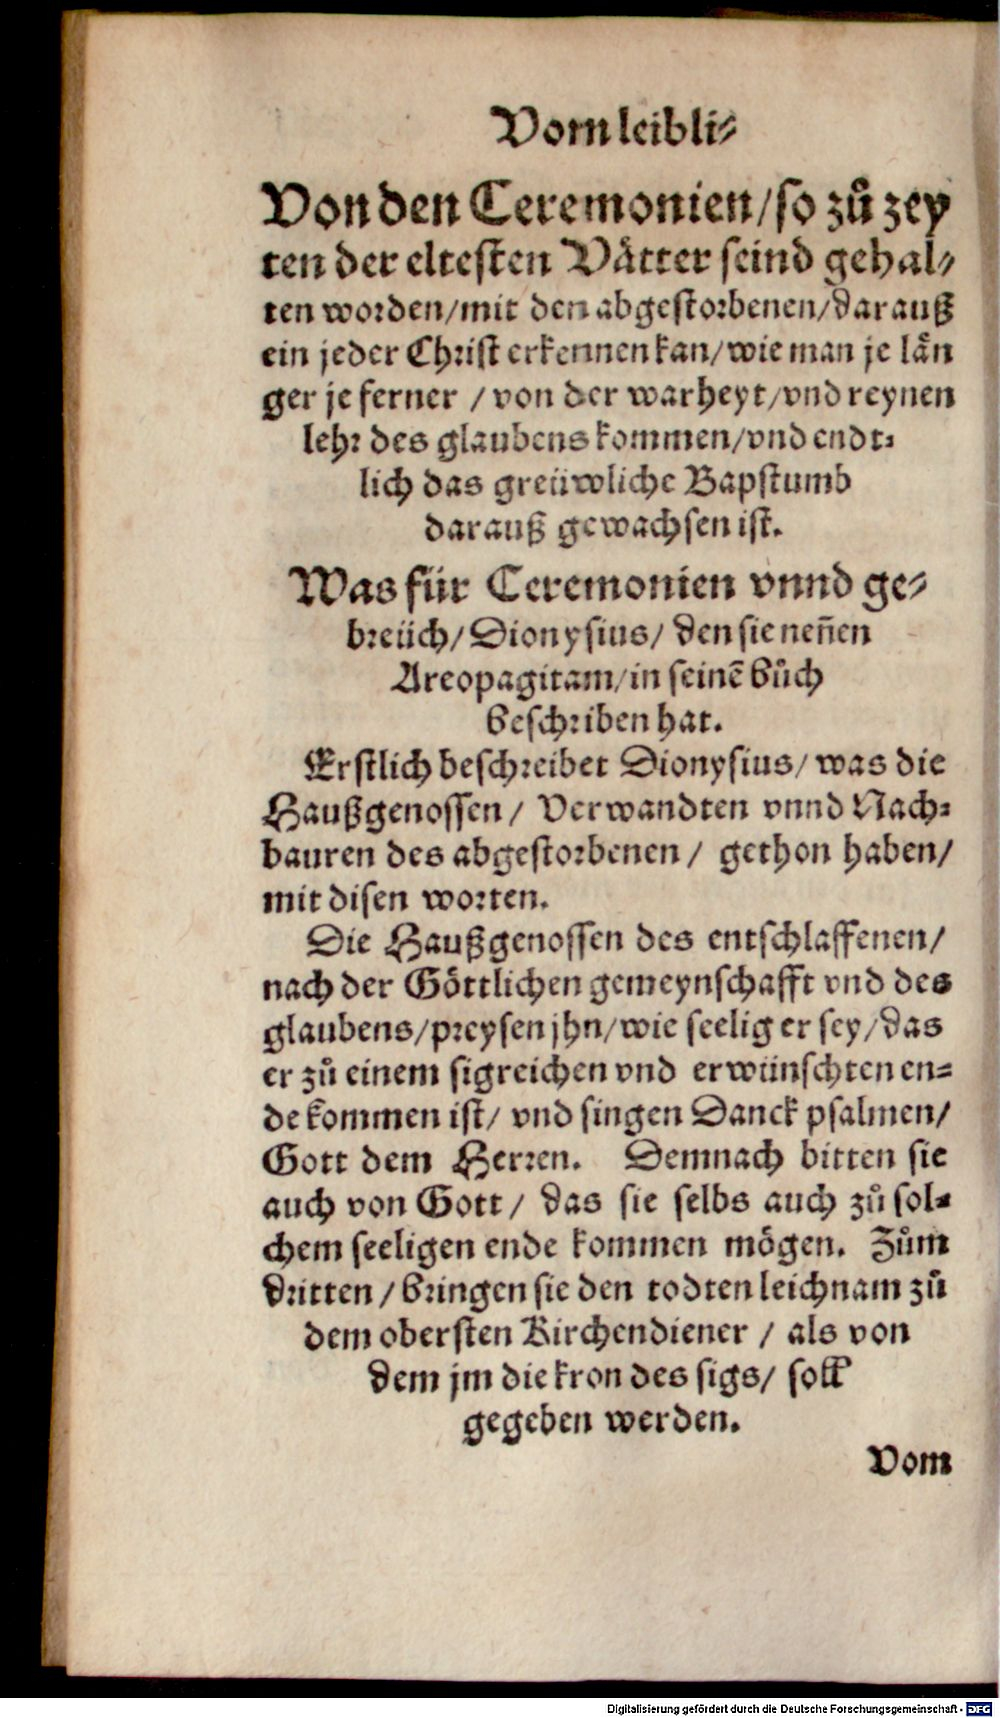 Vom leibli⸗
Von den Ceremonien/so zů zey
ten der eltesten Vätter seind gehal⸗
ten worden/mit den abgestorbenen/darauß
ein jeder Christ erkennen kan/wie man je län
ger je ferner /von der warheyt/vnd reynen
lehr des glaubens kommen/vnd endt⸗
lich das greüwliche Bapstumb
darauß gewachsen ist.
Was für Ceremonien vnnd ge⸗
breüch/Dionysius/den sie neñen
Areopagitam/in seinē bůch
beschriben hat.
Erstlich beschreibet Dionysius/was die
Haußgenossen/ Verwandten vnnd Nach⸗
bauren des abgestorbenen/ gethon haben/
mit disen worten.
Die Haußgenossen des entschlaffenen/
nach der Göttlichen gemeynschafft vnd des
glaubens/preysen jhn/wie seelig er sey/das
er zů einem sigreichen vnd erwünschten en⸗
de kommen ist/ vnd singen Danck psalmen/
Gott dem Herren. Demnach bitten sie
auch von Gott/ das sie selbs auch zů sol⸗
chem seeligen ende kommen mögen. Zům
dritten/bringen sie den todten leichnam zů
dem obersten Kirchendiener / als von
dem jm die kron des sigs/ soll
gegeben werden.
Vom
Digitalisierung gefördert durch die Deutsche Forschungsgemeinschaft - DFG